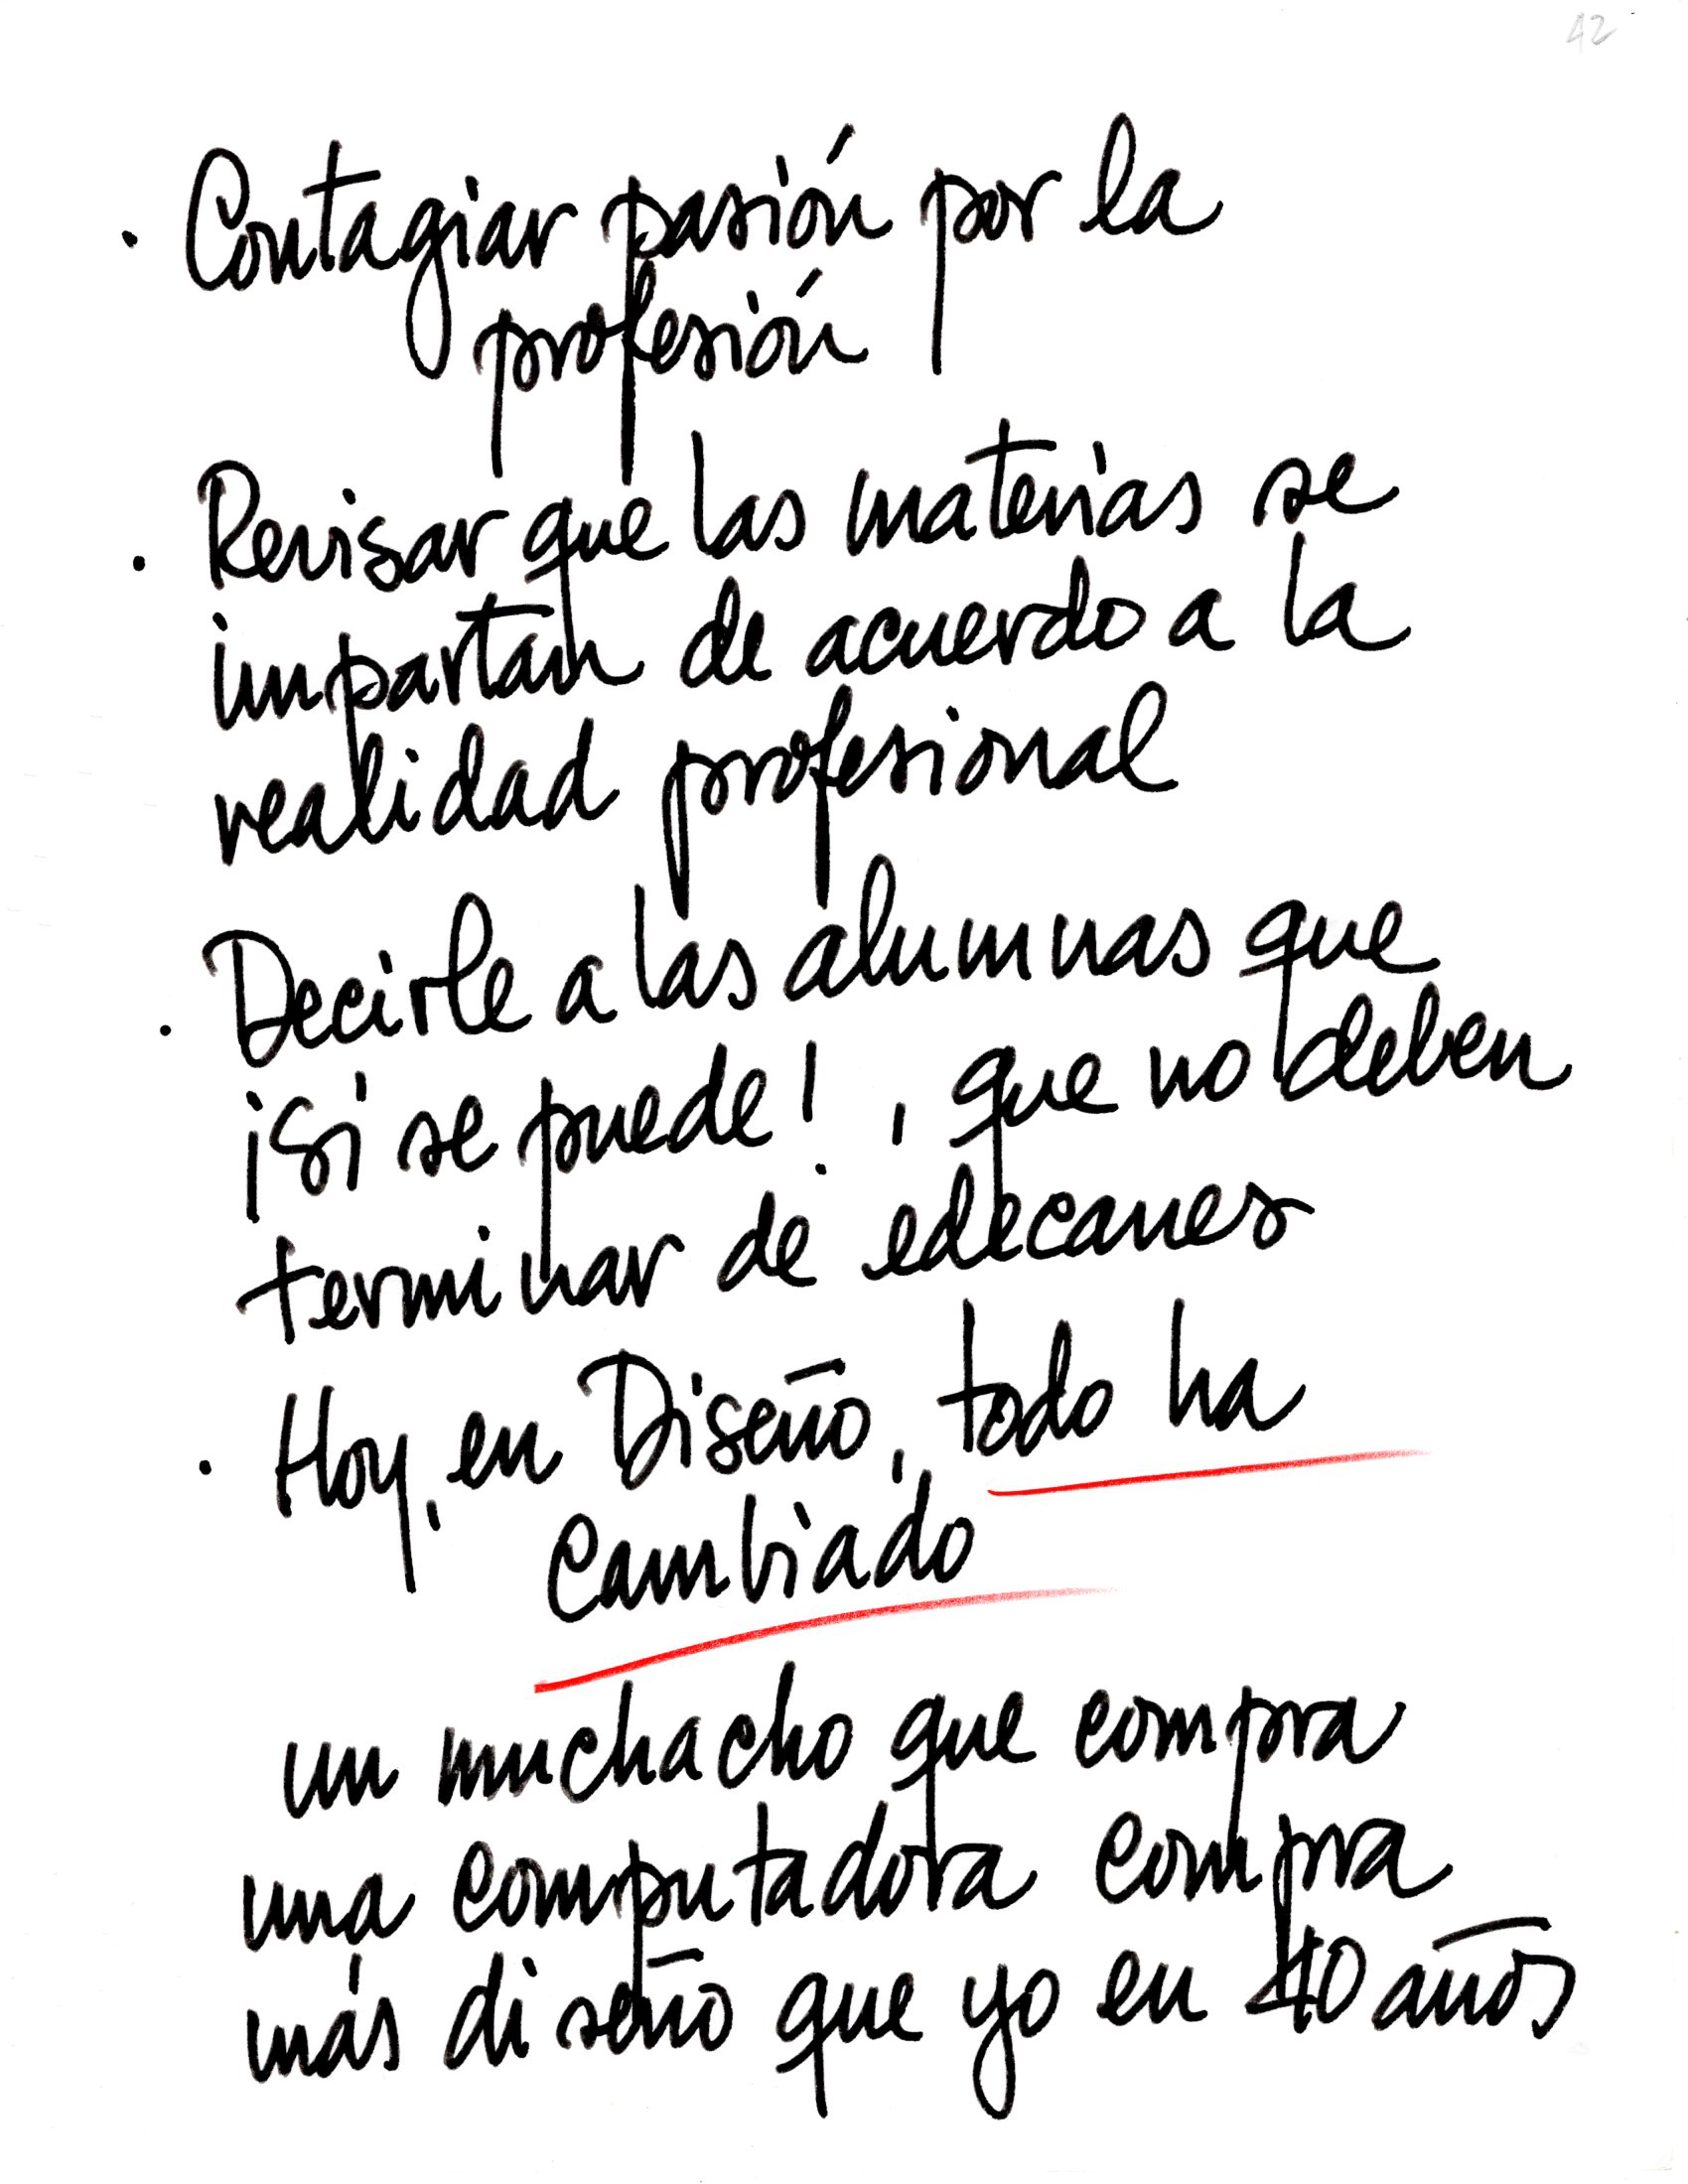 42
· Contagiar pasión por la
profesión
· Revisar que las materias se
impartan de acuerdo a la
realidad profesional
· Decirle a las alumnas que
¡Sí se puede!, que no deben
terminar de edecanes
· Hoy, en Diseño, todo ha
cambiado
un muchacho que compra
una computadora compra
más diseño que yo en 40 años